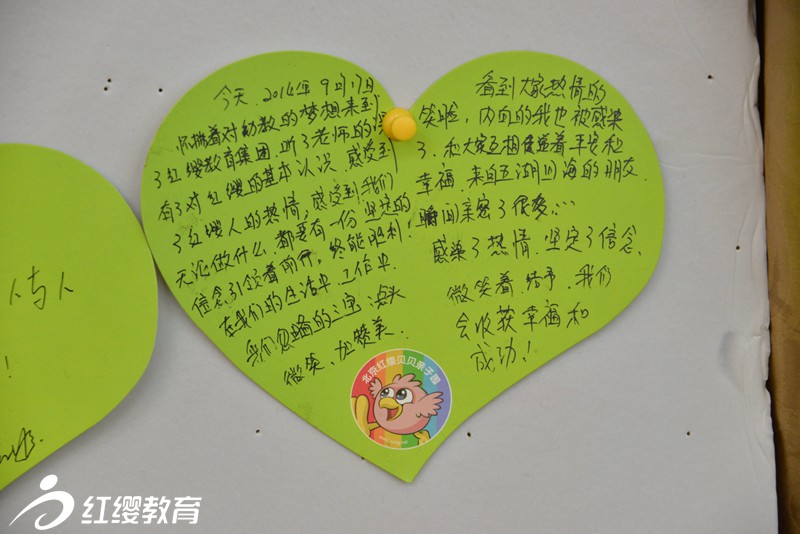 今天,2014年9月17日
怀揣着对幼教的梦想来到
了红缨教育集团,听了老师的
有了对红缨的基本认识 感受到
了红缨人的热情,感受到我们
无论做什么,都要有一份坚定的
信念,引领着前行。终能胜利,
在我们的生活中,工作中,
我们忽略的三宝:点头
微笑、加赞美.
看到大家热情的
笑脸,内向的我也被感染
了.和大家互相传递着平安和
幸福.来自五湖四海的朋友
瞬间亲密了很多…
感染了热情.坚定了信念.
微笑着.给予.我们
会收获幸福和
成功!
人与人
!
北京红缨贝贝亲子园
红缨教育